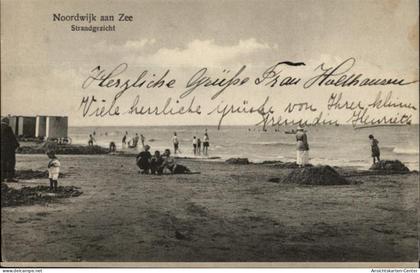 Noordwijk aan Zee
Strandgezicht
Herzliche Grüße Frau Holhausen
Viele herzliche Grüße von Ihrer kleinen
Freundin Henriette
Ansichtskarten-Center